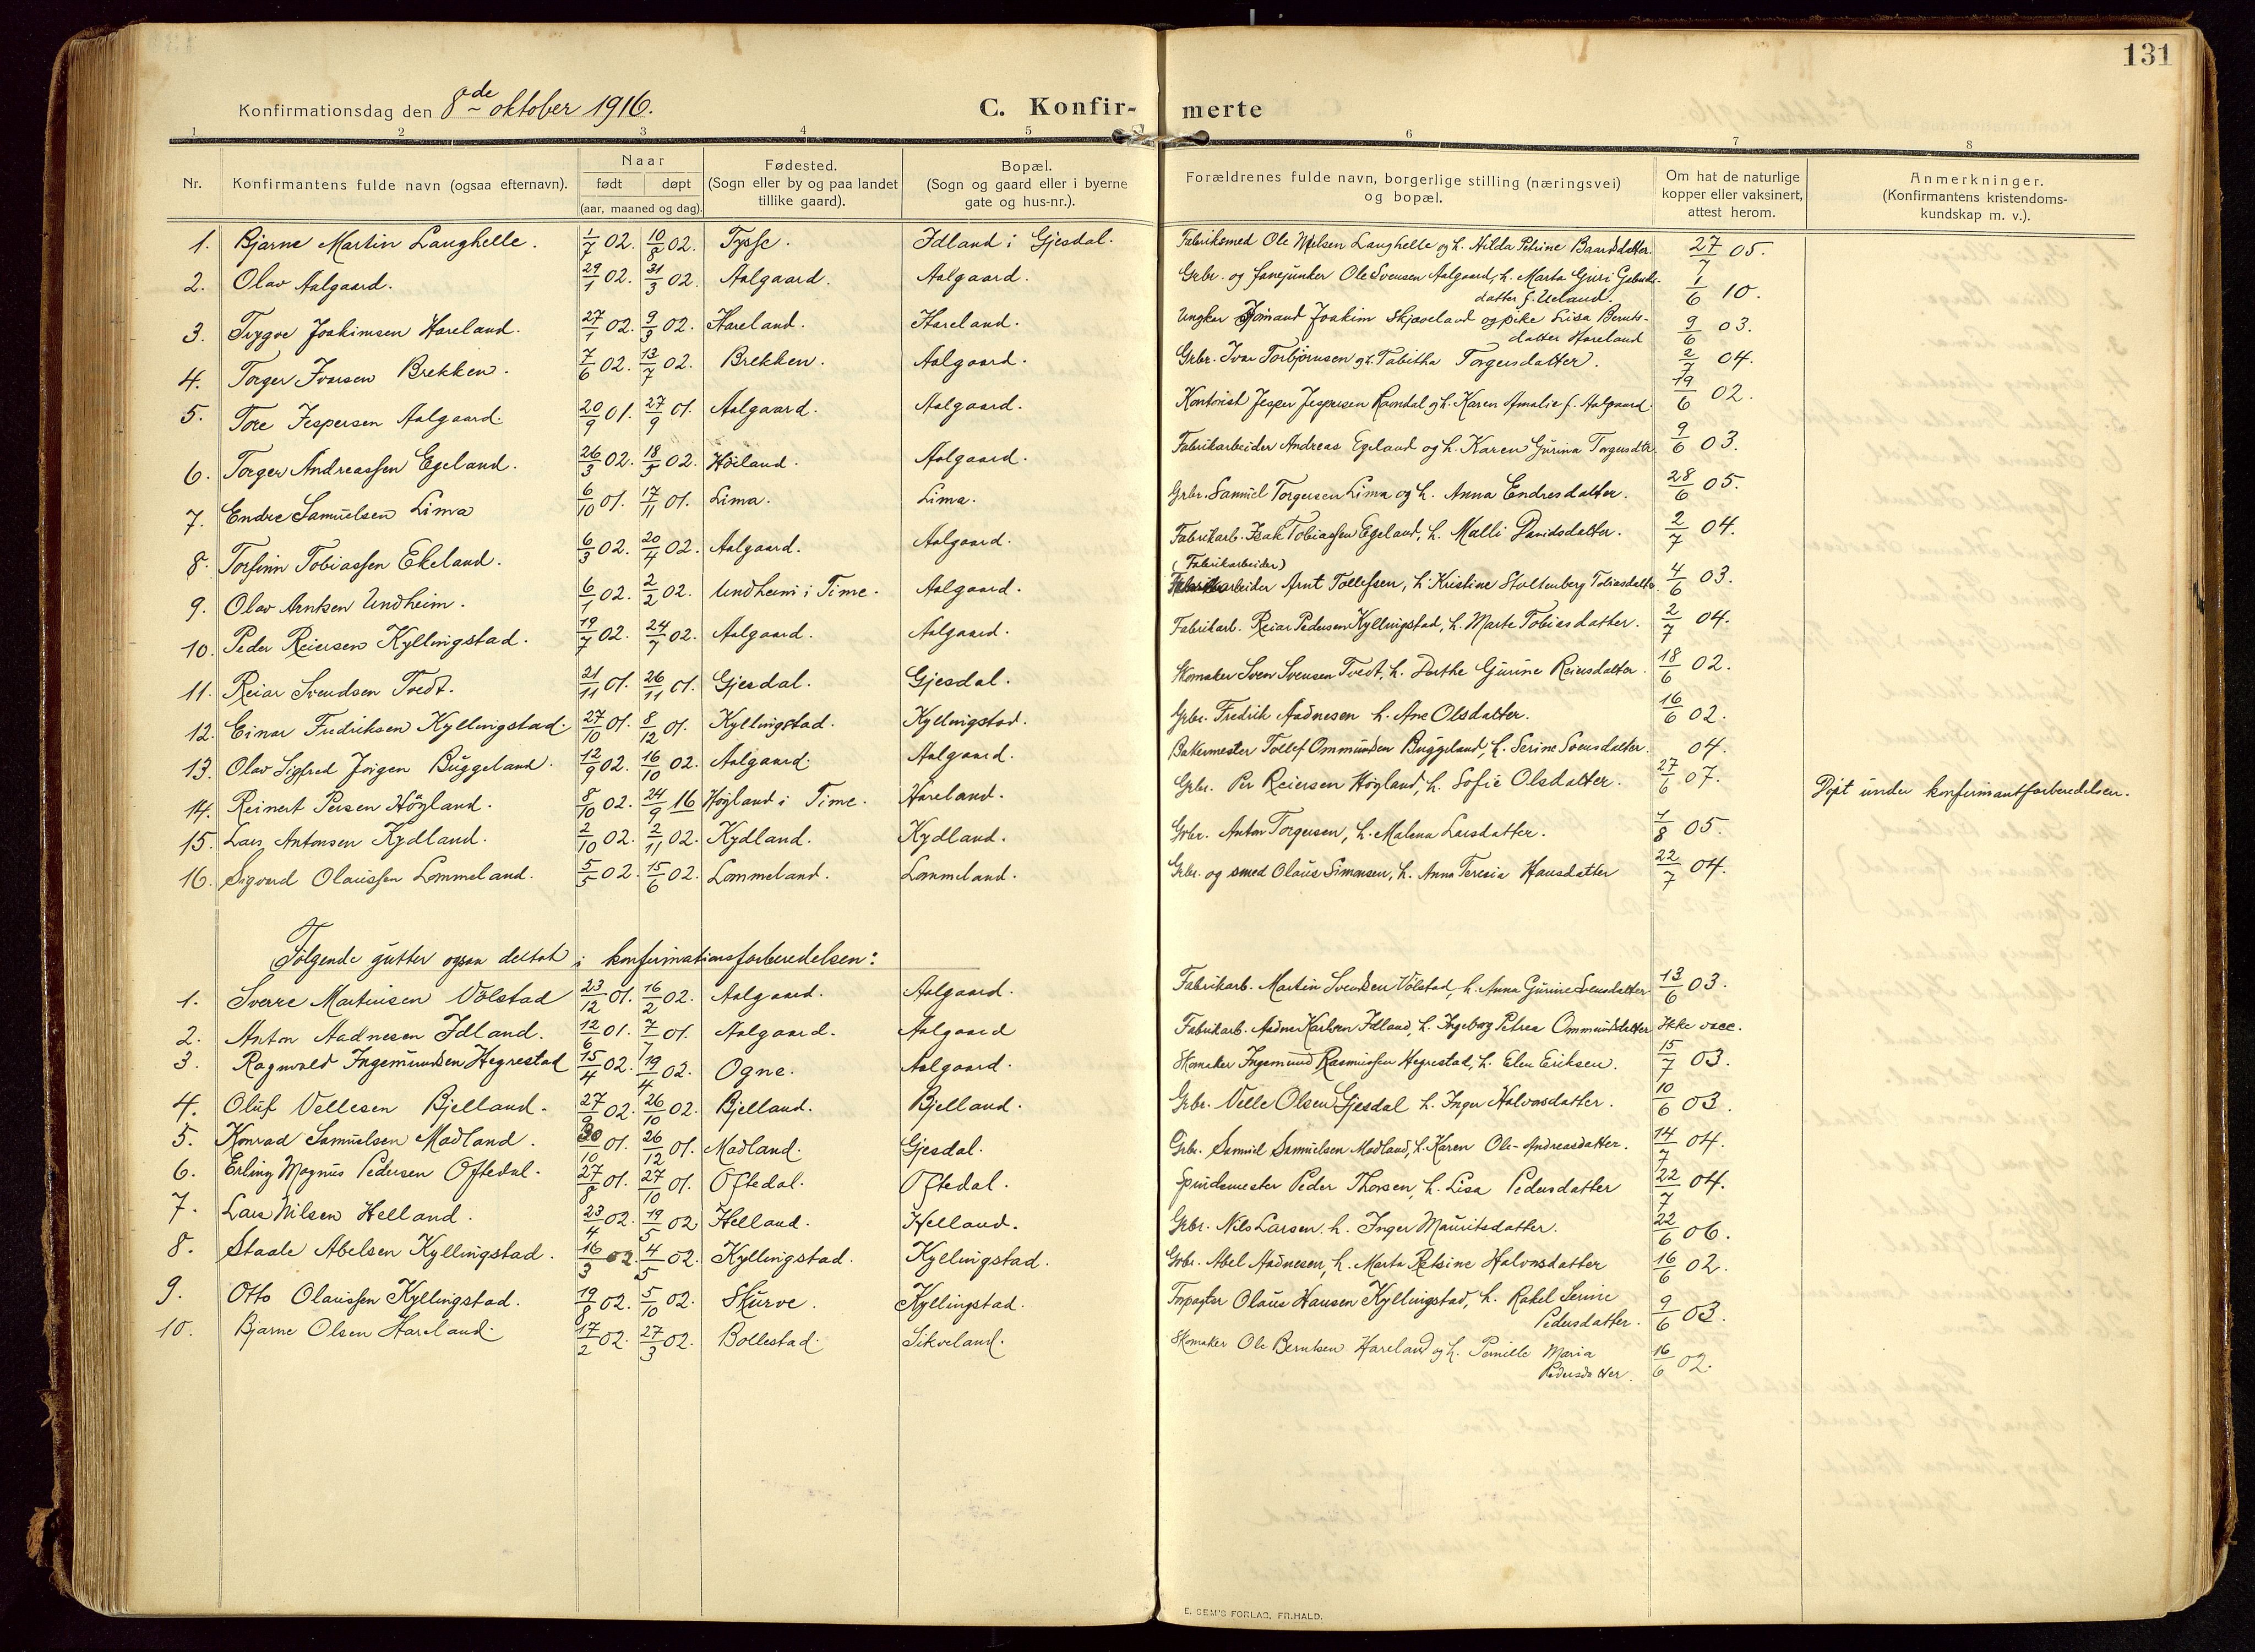 131
Konfirmationsdag den 8de oktober 1916.
C. Konfir- merte
1 2 3 4 5 6 7 8
Nr. Konfirmantens fulde navn (ogsaa efternavn). Naar født døpt (aar, maaned og dag). Fødested. (Sogn eller by og paa landet tillike gaard). Bopæl. (Sogn og gaard eller i byerne gate og hus-nr.). Forældrenes fulde navn, borgerlige stilling (næringsvei) og bopæl. Om hat de naturlige kopper eller vaksinert, attest herom. Anmerkninger. (Konfirmantens kristendoms-kundskap m. v.).
1. Bjarne Martin Langhelle. 1/7 02. 10/8 02. Tysse. Idland i Gjesdal. Fabriksmed Ole Nielsen Langhelle og h. Hilda Petrine Baardsdatter. 27/7 05.
2. Olav Aalgaard. 29/1 02. 31/3 02. Aalgaard. Aalgaard. Grbr. og fanejunker Ole Svensen Aalgaard, h. Marta Guri
datter f. Ueland. 1/6 10.
3. Trygve Joakimsen Hareland. 27/1 02. 9/3 02. Hareland. Hareland. Ungkar Joakim Skjæveland og pike Lisa Bernts-
datter Hareland 9/6 03.
4. Torger Ivarsen Brekken. 7/6 02. 13/7 02. Brekken. Aalgaard. Grbr. Ivar Torbjørnsen og h. Tabitha Torgersdatter. 2/7 04.
5. Tore Jespersen Aalgaard. 20/9 01. 27/9 01. Aalgaard. Aalgaard. Kontorist Jesper Jespersen Ramdal og h. Karen Amalie f. Aalgaard. 19/6 02.
6. Torger Andreassen Egeland. 26/3 02. 18/5 02. Höiland. Aalgaard. Fabrikarbeider Andreas Egeland og h. Karen Gurina Torgersdtr. 9/6 03.
7. Endre Samuelsen Lima 6/10 01. 17/11 01. Lima. Lima. Grbr. Samuel Torgersen Lima og h. Anna Endresdatter. 28/6 05.
8. Torfinn Tobiassen Ekeland. 6/3 02. 20/4 02. Aalgaard. Aalgaard. Fabrikarb. Isak Tobiassen Egeland, h. Malli Davidsdatter. 2/7 04.
(Fabrikarbeider)
9. Olav Arntsen Undheim. 6/1 02. 2/2 02. Undheim i Time. Aalgaard. Fabrikarbeider Arnt Tollefsen, h. Kristine Stoltenberg Tobiasdatter. 4/6 03.
10. Peder Reiersen Kyllingstad. 19/7 02. 24/7 02. Aalgaard. Aalgaard. Fabrikarb. Reiar Pedersen Kyllingstad, h. Marte Tobiasdatter. 2/7 04.
11. Reiar Svendsen Tvedt. 21/11 01. 26/11 01. Gjesdal. Gjesdal. Skomaker Sven Svensen Tvedt, h. Dorthe Gjurine Reiersdatter. 18/6 02.
12. Einar Fredriksen Kyllingstad. 27/10 01. 8/12 01. Kyllingstad. Kyllingstad. Grbr. Fredrik Aadnesen h. Ane Olsdatter. 16/6 02.
13. Olav Sigfred Jørgen Buggeland. 12/9 02. 16/10 02. Aalgaard. Aalgaard. Bakermester Tollef Ommundsen Buggeland, h. Serine Svensdatter. 04.
14. Reinert Persen Högland. 8/10 02. 24/9 16 Högland i Time. Hareland. Grbr. Per Reiersen Högland, h. Sofie Olsdatter. 27/6 07. Döpt under konfirmantforberedelsen.
15. Lars Antonsen Kydland. 2/10 02. 2/11 02. Kydland. Kydland. Grbr. Anton Torgersen, h. Malena Larsdatter. 1/8 05.
16. Sigvard Olaussen Lommeland. 5/5 02. 15/6 02. Lommeland. Lommeland. Grbr. og smed Olaus Simonsen, h. Anna Teresia Hansdatter 22/7 04.
Følgende gutter ogsaa deltok i konfirmationsforberedelsen:
1. Sverre Martinsen Völstad 23/12 01. 16/2 02. Aalgaard. Aalgaard. Fabrikarb. Martin Svendsen Völstad, h. Anna Gurine Svensdatter 13/6 03.
2. Anton Aadnesen Idland. 12/6 01. 7/7 01. Aalgaard. Aalgaard Fabrikarb. Aadne Karlsen Idland, h. Ingeborg Petrea Ommundsdatter Ikke vacc.
3. Ragnvald Ingemundsen Hegrestad 15/4 02. 19/4 02. Ogne. Aalgaard. Skomaker Ingemund Rasmussen Hegrestad, h. Elen Eriksen. 15/7 03.
4. Oluf Vellesen Bjelland. 27/9 02. 26/10 02. Bjelland. Bjelland. Grbr. Velle Olsen Gjesdal h. Inger Halvorsdatter. 10/6 03.
5. Konrad Samuelsen Madland. 30/10 01. 26/12 01. Madland. Gjesdal. Grbr. Samuel Samuelsen Madland, h. Karen Ole-Andreasdatter. 14/7 04.
6. Erling Magnus Pedersen Oftedal. 27/8 01. 27/10 01. Oftedal. Oftedal. Spindemester Peder Thorsen, h. Lisa Pedersdatter 22/7 04.
7. Lars Nilsen Helland. 23/4 02. 19/5 02 Helland. Helland. Grbr. Nils Larsen. h. Inger Mauritsdatter. 22/6 06.
8. Staale Abelsen Kyllingstad. 16/3 02. 4/5 02. Kyllingstad. Kyllingstad. Grbr. Abel Aadnesen, h. Marta Retsine Halvorsdatter 16/6 02.
9. Otto Olaussen Kyllingstad. 19/8 02. 5/10 02. Skurve. Kyllingstad. Forpagter Olaus Hansen Kyllingstad, h. Rakel Serine
Pedersdatter. 9/6 03.
10. Bjarne Olsen Hareland. 17/2 02. 27/3 02. Bollestad. Sikveland. Skomaker Ole Berntsen Hareland og h. Pernille Maria
Pedersdatter. 16/6 02.
E. SEM'S FORLAG, FR.HALD.